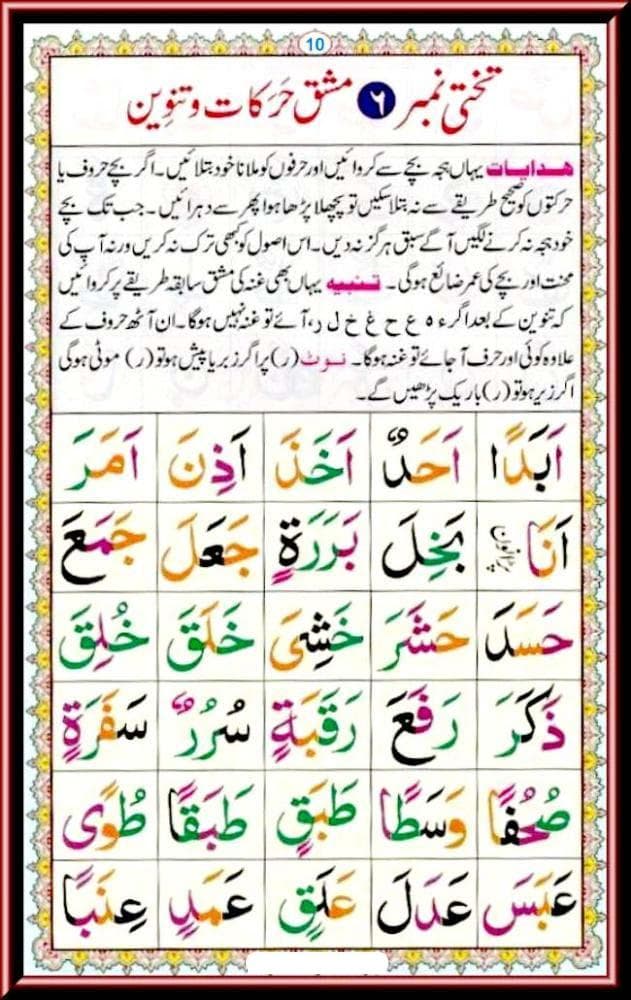 10
تختی نمبر ۶ مشق حرکات و تنوین
ھدایات یہاں ہجہ بچے سے کروائیں اور حرفوں کو ملانا خود بتلائیں۔ اگر بچے حروف یا
حرکتوں کو صحیح طریقے سے نہ بتلا سکیں تو پچھلا پڑھا ہوا پھر سے دہرائیں۔ جب تک بچے
خود ہجہ نہ کرنے لگیں آگے سبق ہرگز نہ دیں۔ اس اصول کو کبھی ترک نہ کریں ورنہ آپ کی
محنت اور بچے کی عمر ضائع ہوگی۔ تنبیہ یہاں بھی غنہ کی مشق سابقہ طریقے پر کروائیں
کہ تنوین کے بعد اگر ء ہ ع ح غ خ ل ر، آئے تو غنہ نہیں ہوگا۔ ان آٹھ حروف کے
علاوہ کوئی اور حرف آجائے تو غنہ ہوگا۔ نوٹ (ر) پر اگر زبر یا پیش ہو تو (ر) موٹی ہوگی
اگر زیر ہو تو (ر) باریک پڑھیں گے۔
اَبَدًا اَحَدٌ اَخَذَ اَذِنَ اَمَرَ
اَنَا بَخِلَ بَرَرَةٍ جَعَلَ جَمَعَ
حَسَدَ حَشَرَ خَشِىَ خَلَقَ خُلِقَ
ذَكَرَ رَفَعَ رَقَبَةٍ سُرُرٌ سَفَرَةٍ
صُحُفًا وَسَطًا طَبَقٍ طَبَقًا طُوًى
عَبَسَ عَدَلَ عَلَقٍ عَمَدٍ عِنَبًا